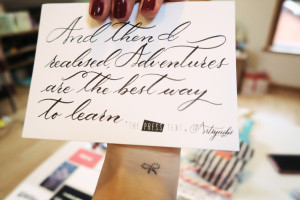 And then I
realised, Adventures
are the best way
to learn.
THE PRESS TENT